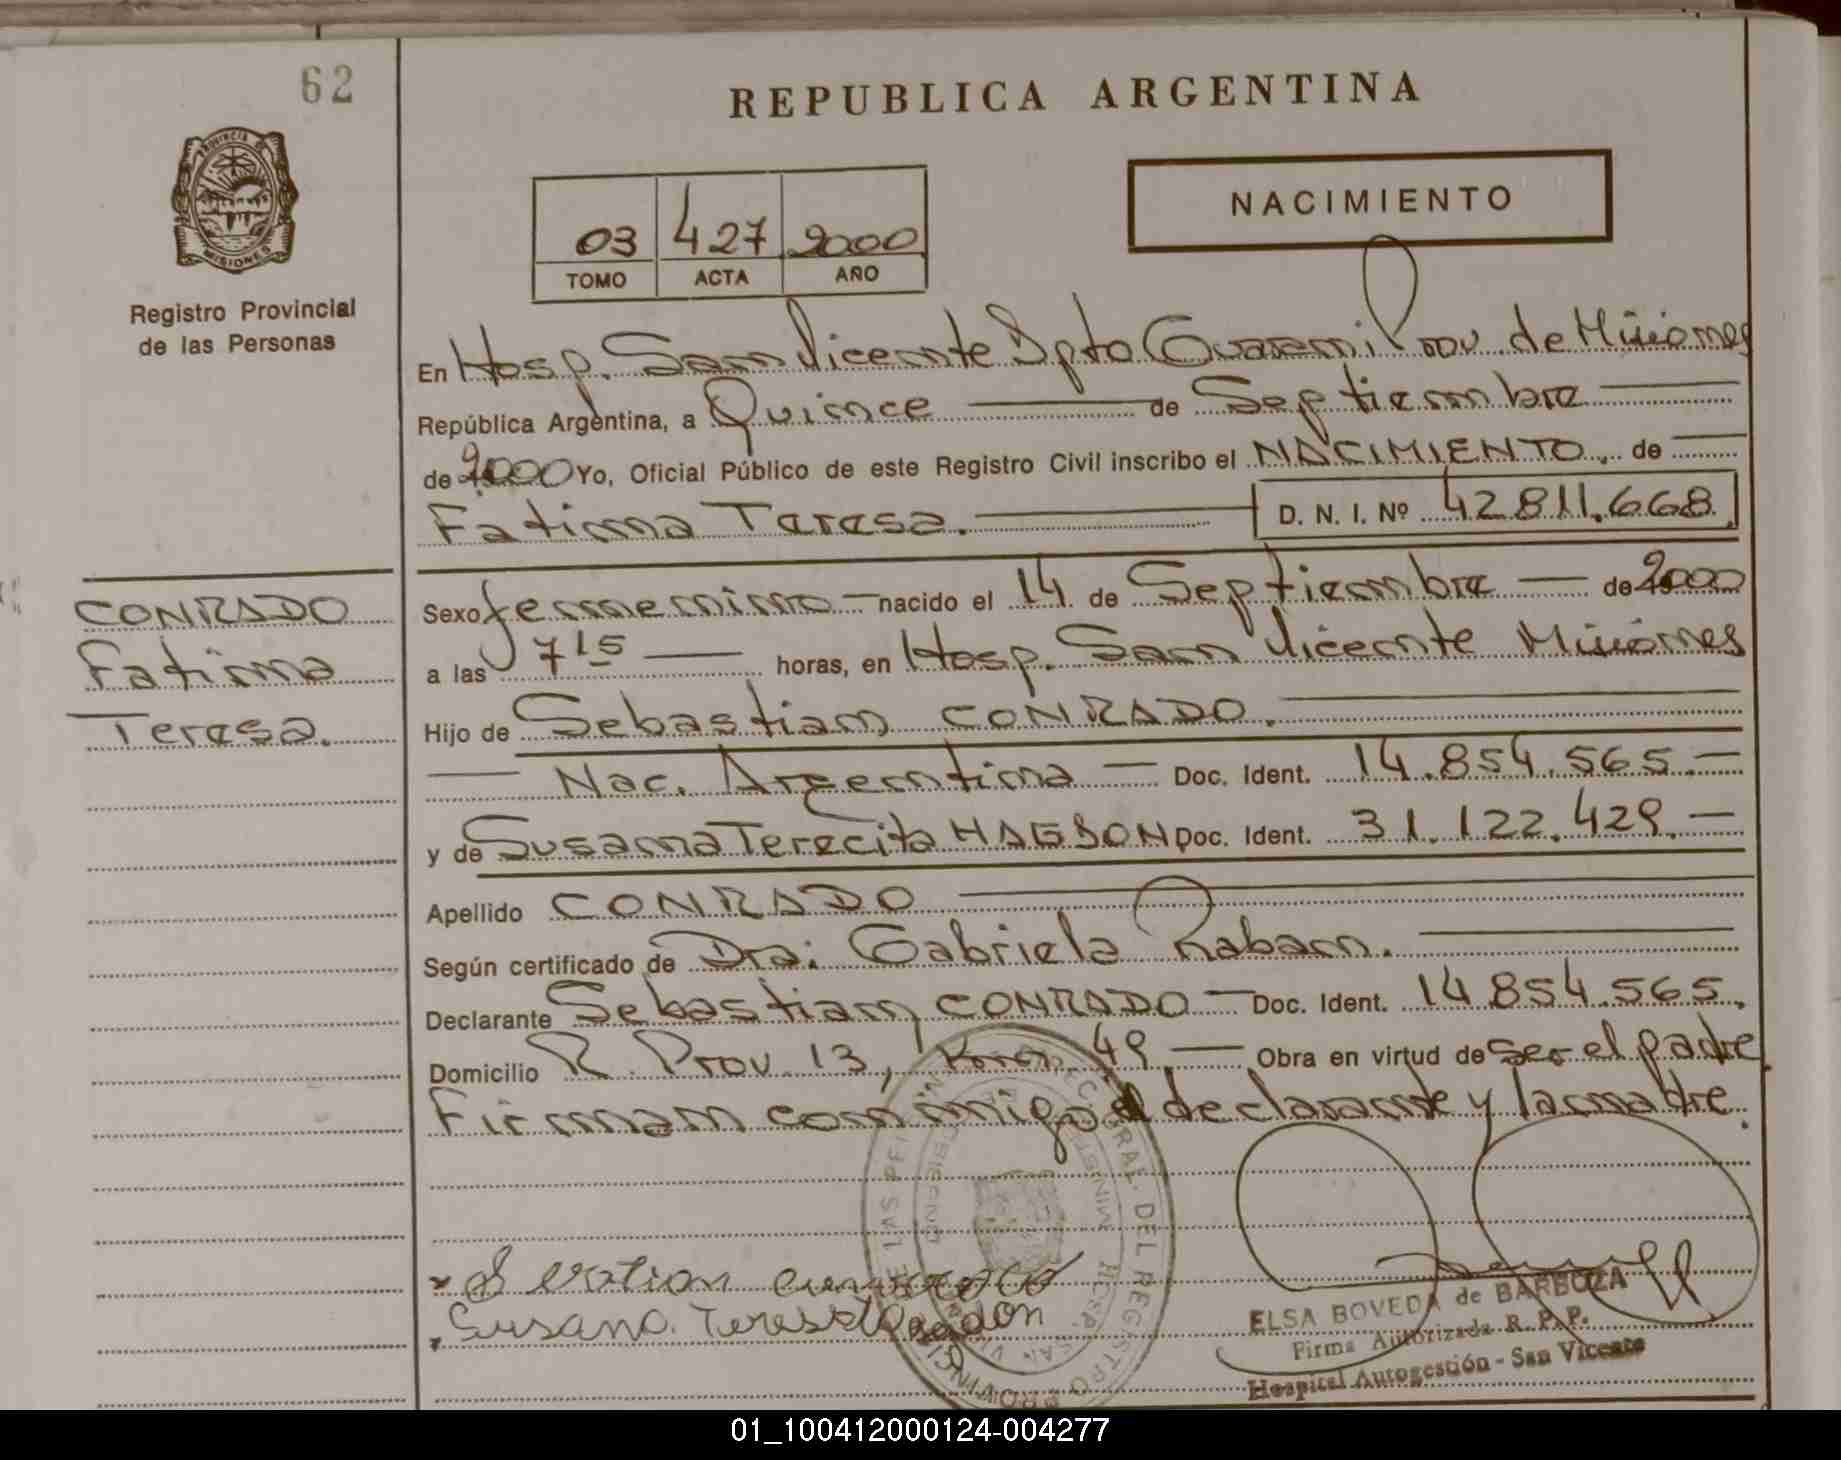 62
REPUBLICA ARGENTINA
PROVINCIA DE
MISIONES
Registro Provincial
de las Personas
NACIMIENTO
03 427 2000
TOMO ACTA AÑO
En Hosp. San Vicente Dpto Guarani Prov. de Misiones
República Argentina, a Quince de Septiembre
de 2000 Yo, Oficial Público de este Registro Civil inscribo el NACIMIENTO, de
Fatima Teresa. D. N. I. Nº 42811.668.
CONRADO
Fatima
Teresa.
Sexo femenino nacido el 14 de Septiembre de 2000
a las 7 15 horas, en Hosp. San Vicente Misiones
Hijo de Sebastian CONRADO.
Nac. Argentina Doc. Ident. 14.854.565.
y de Susana Terecita HAGDON Doc. Ident. 31.122.429.
Apellido CONRADO
Según certificado de Dra: Gabriela Raban.
Declarante Sebastian CONRADO Doc. Ident. 14 854.565.
Domicilio R. Prov. 13, Km 49 Obra en virtud de ser el padre
Firman conmigo el declarante y la madre.
Susana
ELSA BOVEDA de BARBOZA
Firma Autorizada R. P. P.
Hospital Autogestión - San Vicente
DEL REGISTRO
01_100412000124-004277